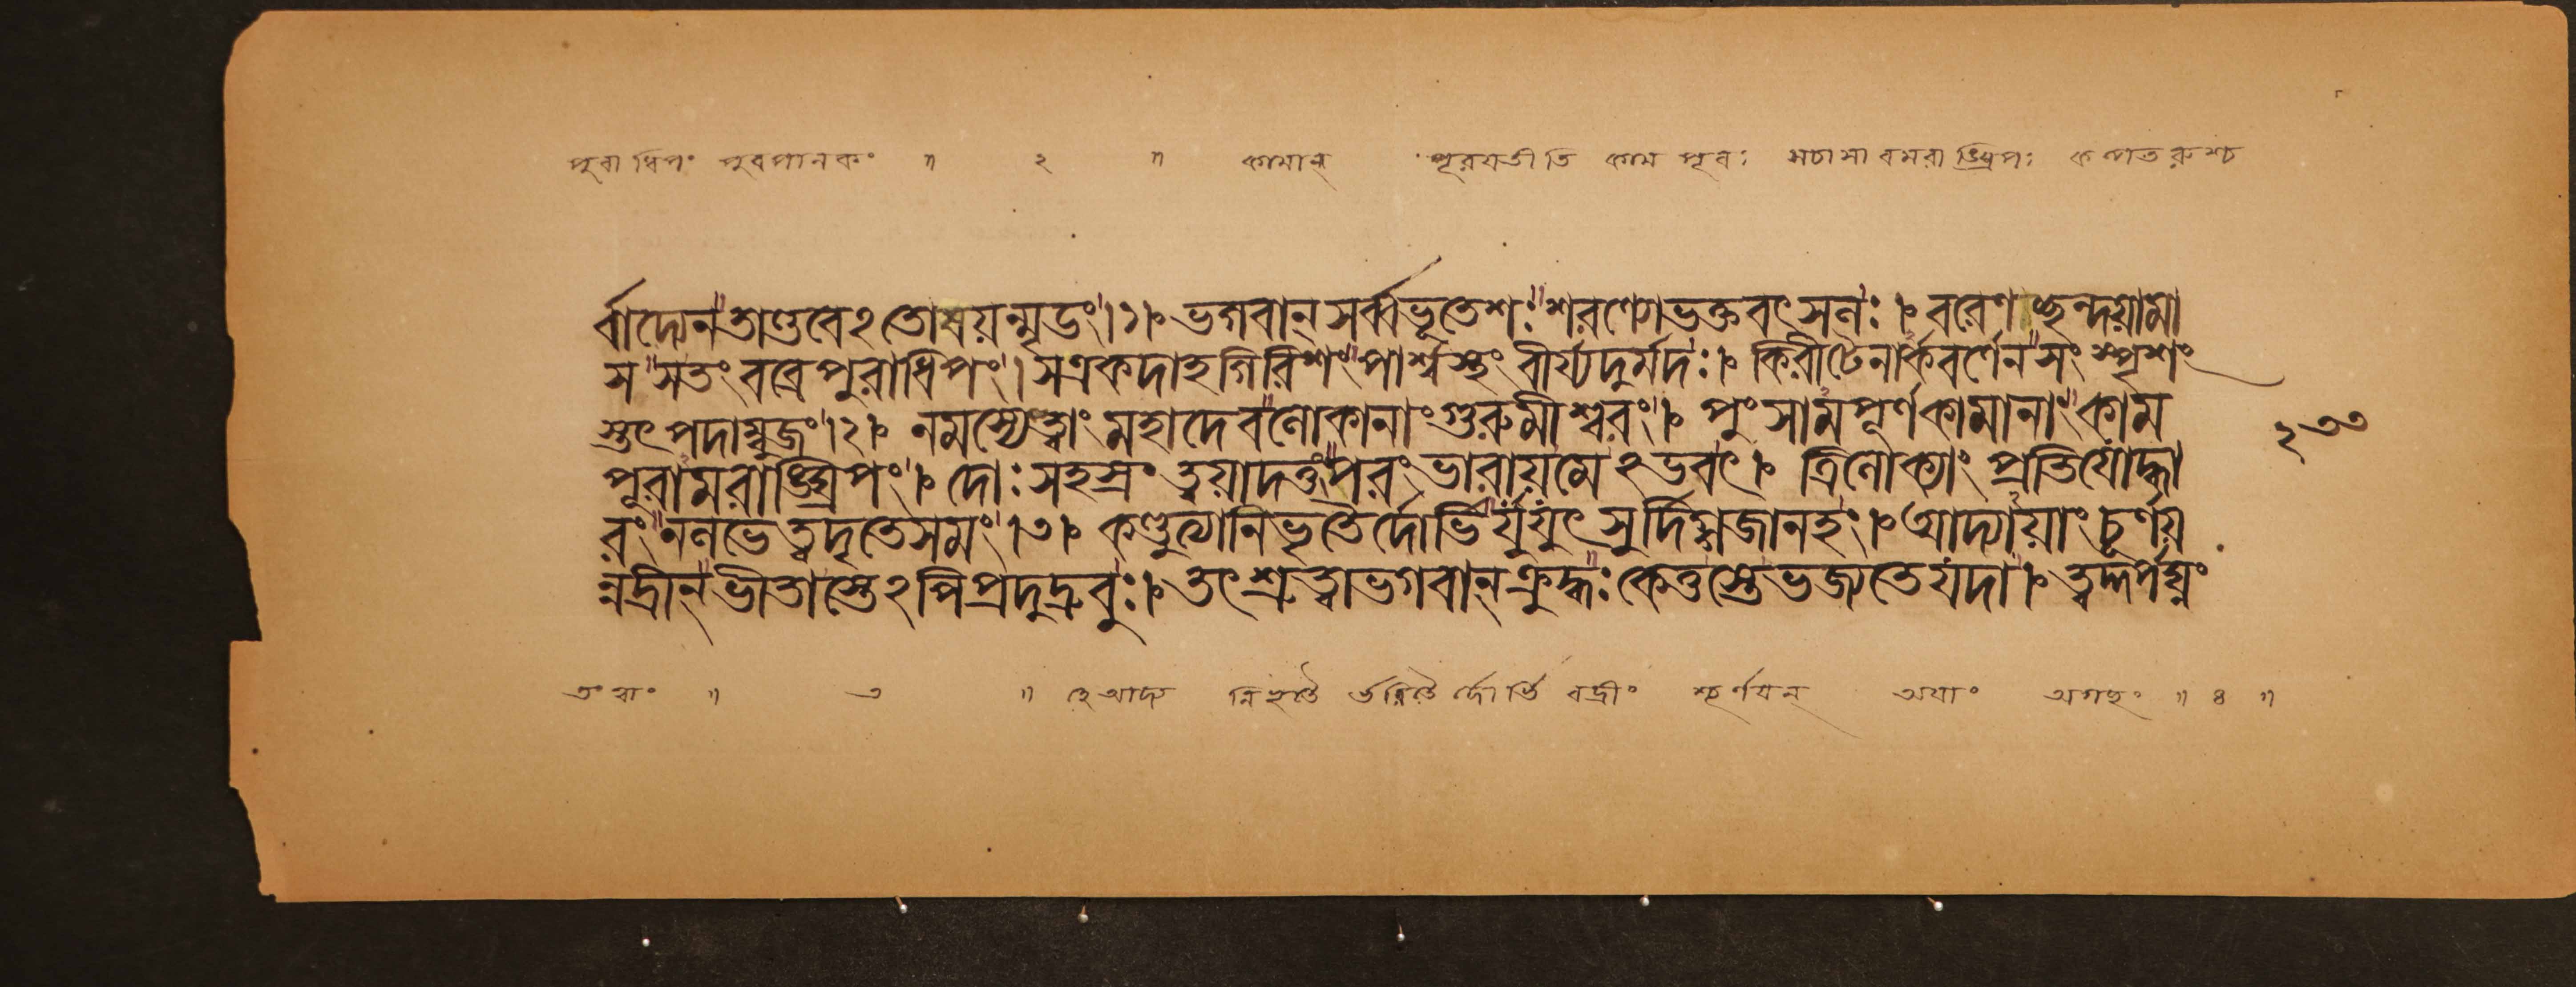 পুরাধিপং পুরপালকং ॥ ২ ॥ কামান্ পূরয়তীতি কামপূরঃ সচাসাবমরাঙ্ঘ্রিপঃ কল্পতরুশ্চ
র্বাদ্যেন তাণ্ডবেঽতোষয়ন্মৃডং।১। ভগবান্ সর্ব্বভূতেশঃ শরণ্যো ভক্তবৎসলঃ। বরেণ চ্ছন্দয়ামা
স সতং বব্রে পুরাধিপং। স একদাহ গিরিশং পার্শ্বস্থং বীর্য্যদুর্মদঃ। কিরীটেনার্কবর্ণেন সংস্পৃশং
স্তৎপদাম্বুজং।২। নমস্যে ত্বাং মহাদেব লোকানাং গুরুমীশ্বরং। পুংসামপূর্ণকামানাং কাম
পূরামরাঙ্ঘ্রিপং। দোঃসহস্রং ত্বয়া দত্তং পরং ভারায় মেঽভবৎ। ত্রিলোক্যাং প্রতিযোদ্ধা
রং ন লভে ত্বদৃতে সমং।৩। কণ্ডুত্যা নিভৃতৈর্দোর্ভির্যুযুৎসুর্দিগ্গজানহং। আদ্যায়াং চূর্ণয়
ন্নদ্রীন্ ভীতাস্তেঽপি প্রদুদ্রুবুঃ। তৎ শ্রুত্বা ভগবান্ ক্রুদ্ধঃ কেতুস্তে ভজ্যতে যদা। ত্বদ্দর্পঘ্নং
২৩৩
তং ত্বাং ॥ ৩ ॥ হে আদ্য র্দোর্ভি রদ্রীং শ্চূর্ণয়ন্ অয়াং অগছং ॥ ৪ ॥